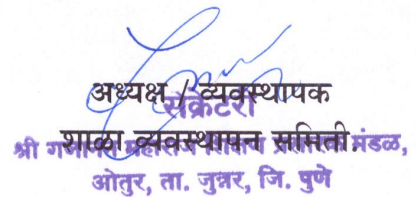 अध्यक्ष / व्यवस्थापक
सेक्रेटरी
शाळा व्यवस्थापन समिती.
श्री महाराज मंडळ,
ओतुर, ता. जुन्नर, जि. पुणे